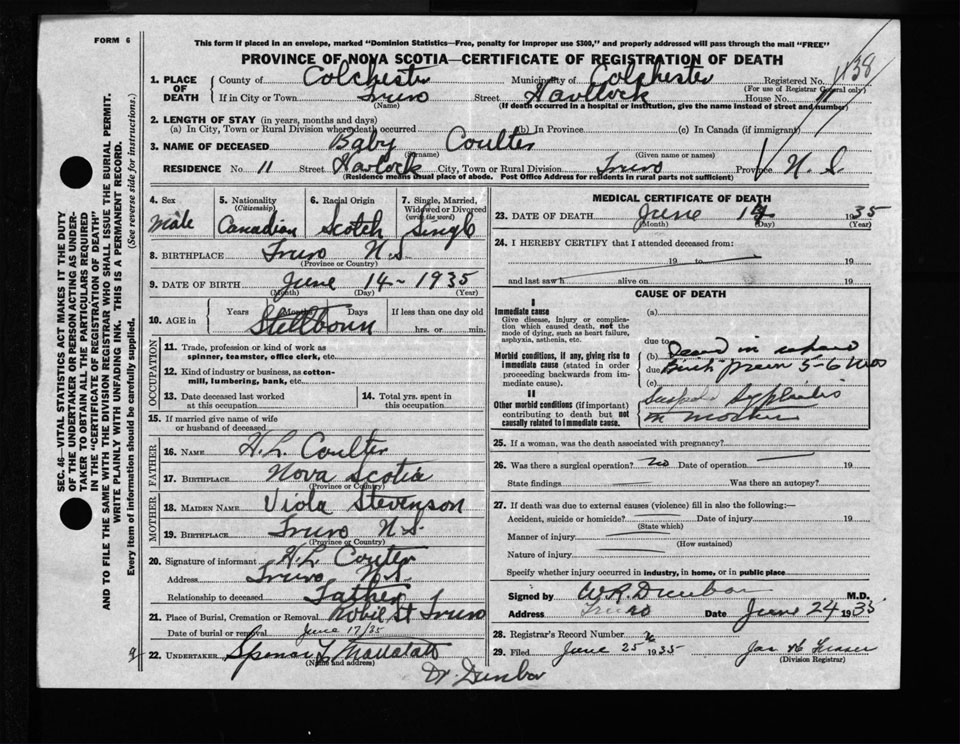 FORM 6
This form if placed in an envelope, marked "Dominion Statistics—Free, penalty for improper use $300," and properly addressed will pass through the mail "FREE"
PROVINCE OF NOVA SCOTIA—CERTIFICATE OF REGISTRATION OF DEATH
1. PLACE OF DEATH County of Colchester Municipality of Colchester Registered No. 1138
(For use of Registrar General only)
If in City or Town Truro Street Havelock House No. 11
(Name) (If death occurred in a hospital or institution, give the name instead of street and number)
2. LENGTH OF STAY (in years, months and days)
(a) In City, Town or Rural Division where death occurred (b) In Province (c) In Canada (if immigrant)
3. NAME OF DECEASED Baby Coulter
(Surname) (Given name or names)
RESIDENCE No 11 Street Havlock City, Town or Rural Division Truro Province N. S.
(Residence means usual place of abode. Post Office Address for residents in rural parts not sufficient)
4. Sex Male
5. Nationality (Citizenship) Canadian
6. Racial Origin Scotch
7. Single, Married, Widowed or Divorced (write the word) Single
8. BIRTHPLACE Truro N.S
(Province or Country)
9. DATE OF BIRTH June 14 - 1935
(Month) (Day) (Year)
10. AGE in Years Months Days If less than one day old
Stillborn hrs. or min.
OCCUPATION
11. Trade, profession or kind of work as spinner, teamster, office clerk, etc.
12. Kind of industry or business, as cotton-mill, lumbering, bank, etc.
13. Date deceased last worked at this occupation
14. Total yrs. spent in this occupation
15. If married give name of wife or husband of deceased
FATHER
16. NAME H. L. Coulter
17. BIRTHPLACE Nova Scotia
(Province or Country)
MOTHER
18. MAIDEN NAME Viola Stevenson
19. BIRTHPLACE Truro N.S.
(Province or Country)
20. Signature of informant H. L. Coulter
Address Truro N.S
Relationship to deceased Father
21. Place of Burial, Cremation or Removal Robie St Truro
Date of burial or removal June 17/35
22. UNDERTAKER
(Name and address)
Dr. Dunbar
MEDICAL CERTIFICATE OF DEATH
23. DATE OF DEATH June 14 1935
(Month) (Day) (Year)
24. I HEREBY CERTIFY that I attended deceased from:
19 to 19
and last saw h alive on 19
CAUSE OF DEATH
I
Immediate cause
Give disease, injury or complication which caused death, not the mode of dying, such as heart failure, asphyxia, asthenia, etc.
(a)
due to
Morbid conditions, if any, giving rise to immediate cause (stated in order proceeding backwards from immediate cause).
(b) Dead in utero
due to Birth Prem 5-6 Mos
(c)
II
Other morbid conditions (if important) contributing to death but not causally related to immediate cause.
Suspect Syphilis
in mother
25. If a woman, was the death associated with pregnancy?
26. Was there a surgical operation? no Date of operation 19
State findings Was there an autopsy?
27. If death was due to external causes (violence) fill in also the following:—
Accident, suicide or homicide? Date of injury 19
(State which)
Manner of injury
(How sustained)
Nature of injury
Specify whether injury occurred in industry, in home, or in public place
Signed by W.R. Dunbar M.D.
Address Truro Date June 24 1935
28. Registrar's Record Number
29. Filed June 25 1935 Jas Fraser
(Division Registrar)
SEC. 46—VITAL STATISTICS ACT MAKES IT THE DUTY
OF THE UNDERTAKER OR PERSON ACTING AS UNDER-
TAKER TO OBTAIN ALL THE PARTICULARS REQUIRED
IN THE "CERTIFICATE OF REGISTRATION OF DEATH"
AND TO FILE THE SAME WITH THE DIVISION REGISTRAR WHO SHALL ISSUE THE BURIAL PERMIT.
WRITE PLAINLY WITH UNFADING INK. THIS IS A PERMANENT RECORD.
Every item of information should be carefully supplied. (See reverse side for instructions.)